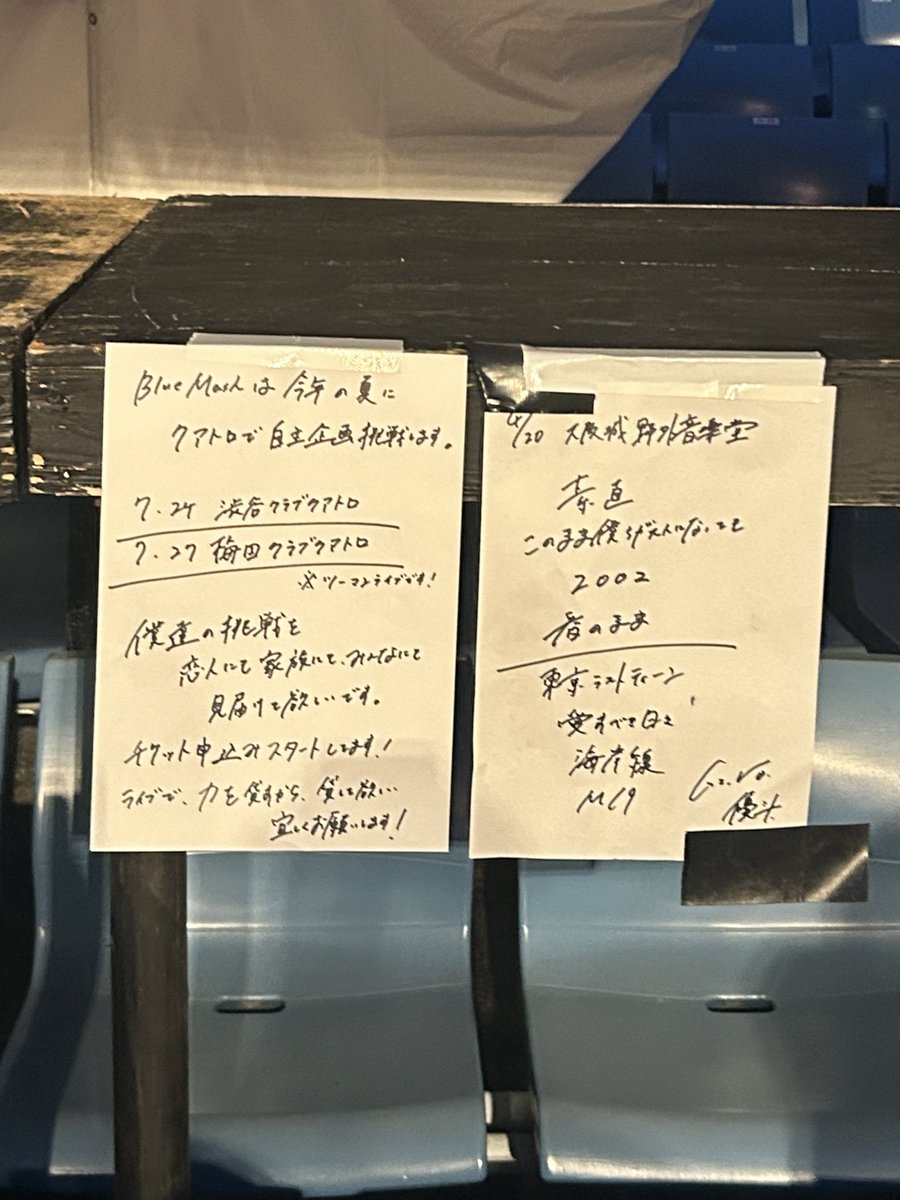 Blue Mashは 今年の夏に
クアトロで 自主企画挑戦します。
7.24 渋谷クラブクアトロ
7.27 梅田クラブクアトロ
※ツーマンライブです!
僕達の挑戦を
恋人にも 家族にも、みんなにも
見届けて欲しいです。
チケット申込みスタートしてます!
ライブで、力を貸すから、貸して欲しい
宜しくお願いします!
4/20 大阪城野外音楽堂
素直
このまま僕らが大人になっても
2002
春のまま
東京ラストティーン
愛すべき日々
海岸線
M19
Gt.Vo.
優斗